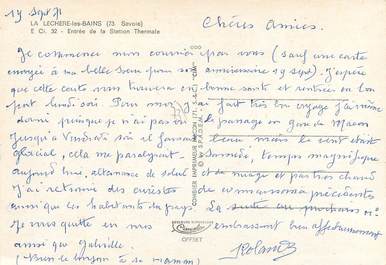 19 Sept 71
LA LECHERE-les-BAINS (73. Savoie)
E Ci. 32 - Entrée de la Station Thermale
Chères Amies.
Je commence mon courrier par vous (sauf une carte
envoyée à ma belle Soeur pour son anniversaire 19 Sept). J'espère
que cette carte vous trouvera en bonne santé et rentrées en bon
port lundi soir. Pour moi j'ai fait très bon voyage j'ai même
dormi puisque je n'ai pas vu le passage en gare de Macon
jusqu'à Vendredi soir il faisait beau mais le vent était
glacial, cela me paralysait Samedi, temps magnifique
aujourd'hui, alternance de soleil et de nuage et parties chaud
J'ai retrouvé des curistes de connaissance précédentes
ainsi que les habitants du pays La suite au prochain n°
Je vous quitte en vous embrassant bien affectueusement
ainsi que Gabrielle.
Roland
(Bien le bonjour à sa Maman)
COURRIER IMPRIMEUR MACON
OFFSET